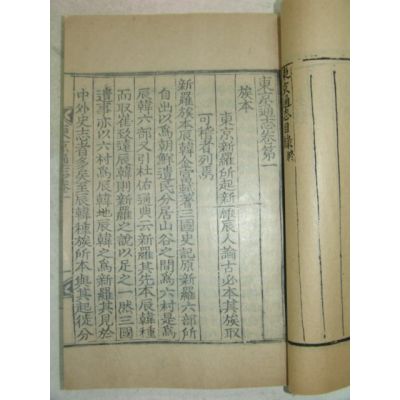 東京通志目錄終
東京通志卷第一
族本
東京新羅所起新羅辰人論古必本其族取
可稽者列焉
新羅族本辰韓金富軾著三國史記原新羅六部所
自出以爲朝鮮遺民分居山谷之間爲六村是爲
辰韓六部又引杜佑通典云新羅其先本辰韓種
而取崔致遠辰韓則新羅之說以足之 然三國
遺事亦以六村爲辰韓地辰韓之爲新羅其見於
中外史志者多矣至辰韓種族所本與其起徙分
東京通志卷一